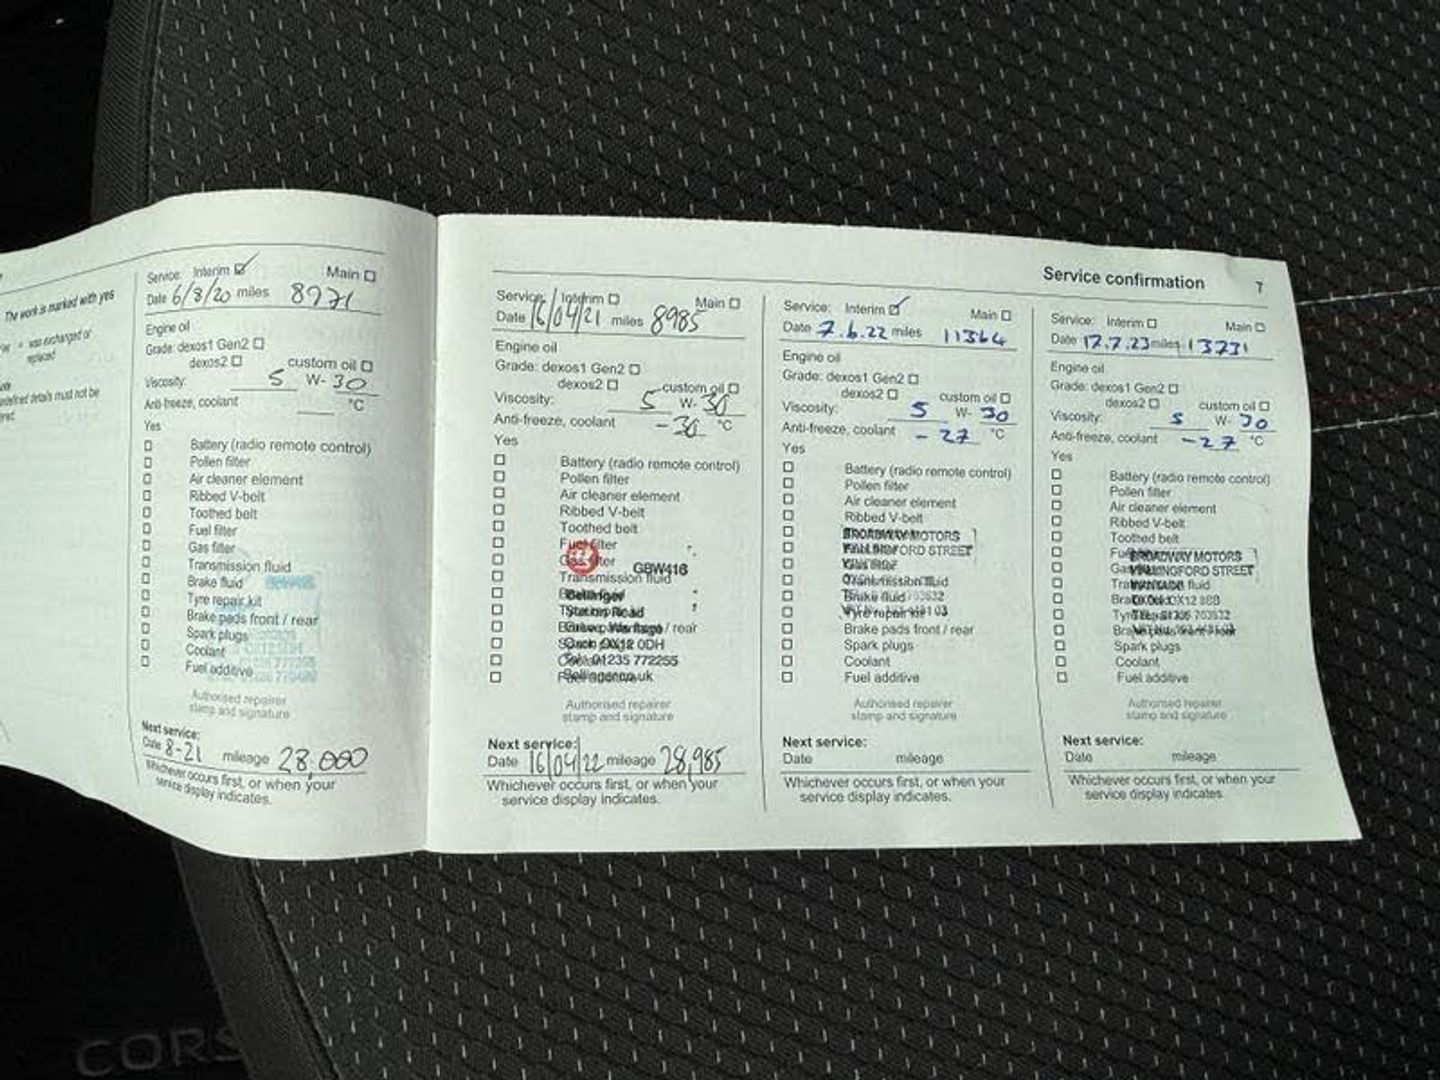 The work is marked with yes
= was exchanged or
replaced
Service: Interim ☑ Main ☐
Date 6/8/20 miles 8971
Engine oil
Grade: dexos1 Gen2 ☐
dexos2 ☐ custom oil ☐
Viscosity: 5 W- 30
Anti-freeze, coolant °C
Yes
☐ Battery (radio remote control)
☐ Pollen filter
☐ Air cleaner element
☐ Ribbed V-belt
☐ Toothed belt
☐ Fuel filter
☐ Gas filter
☐ Transmission fluid
☐ Brake fluid
☐ Tyre repair kit
☐ Brake pads front / rear
☐ Spark plugs
☐ Coolant
☐ Fuel additive
Authorised repairer
stamp and signature
Next service:
Date 8-21 mileage 28,000
Whichever occurs first, or when your
service display indicates.
Service confirmation 7
Service: Interim ☐ Main ☐
Date 16/04/21 miles 8985
Engine oil
Grade: dexos1 Gen2 ☐
dexos2 ☐ custom oil ☐
Viscosity: 5 W- 30
Anti-freeze, coolant -36 °C
Yes
☐ Battery (radio remote control)
☐ Pollen filter
☐ Air cleaner element
☐ Ribbed V-belt
☐ Toothed belt
☐ Fuel filter
☐ Gas filter
GBW416
☐ Transmission fluid
Bellinger
Station Road
Grove, Wantage
Oxon OX12 0DH
Tel: 01235 772255
Bellinger.co.uk
Authorised repairer
stamp and signature
Next service:
Date 16/04/22 mileage 28,985
Whichever occurs first, or when your
service display indicates.
Service: Interim ☑ Main ☐
Date 7.6.22 miles 11364
Engine oil
Grade: dexos1 Gen2 ☐
dexos2 ☐ custom oil ☐
Viscosity: 5 W- 30
Anti-freeze, coolant -27 °C
Yes
☐ Battery (radio remote control)
☐ Pollen filter
☐ Air cleaner element
☐ Ribbed V-belt
BROADWAY MOTORS
WALLINGFORD STREET
☐ Gas filter
☐ Transmission fluid
☐ Brake fluid
☐ Tyre repair kit
☐ Brake pads front / rear
☐ Spark plugs
☐ Coolant
☐ Fuel additive
Authorised repairer
stamp and signature
Next service:
Date mileage
Whichever occurs first, or when your
service display indicates.
Service: Interim ☐ Main ☐
Date 17.7.23 miles 13731
Engine oil
Grade: dexos1 Gen2 ☐
dexos2 ☐ custom oil ☐
Viscosity: 5 W- 30
Anti-freeze, coolant -27 °C
Yes
☐ Battery (radio remote control)
☐ Pollen filter
☐ Air cleaner element
☐ Ribbed V-belt
☐ Toothed belt
BROADWAY MOTORS
WALLINGFORD STREET
WANTAGE
OX12 8BB
☐ Spark plugs
☐ Coolant
☐ Fuel additive
Authorised repairer
stamp and signature
Next service:
Date mileage
Whichever occurs first, or when your
service display indicates.
CORS